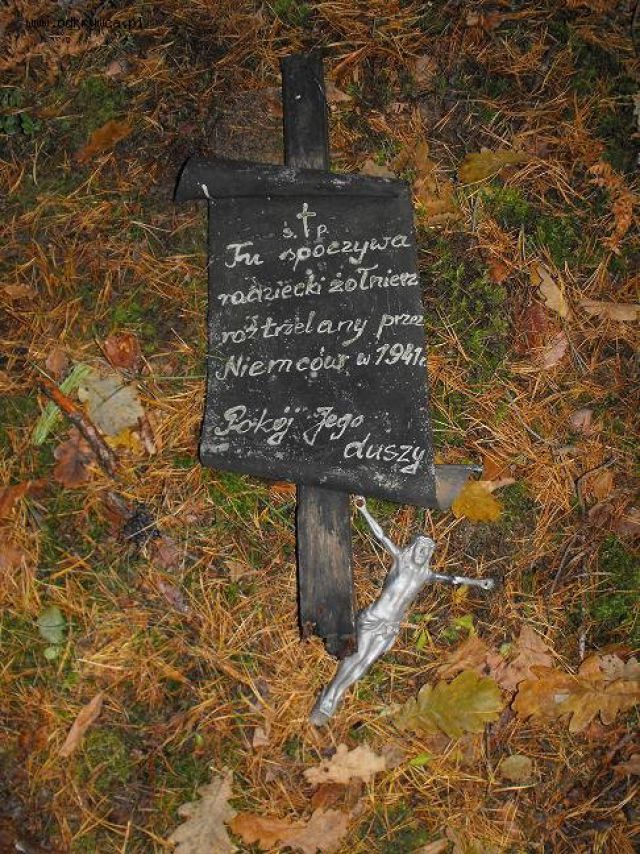 www.odkrywca.pl
ś.†p.
Tu spoczywa
radziecki żołnierz
roztrzelany przez
Niemców w 1941r.
"Pokój" Jego
duszy